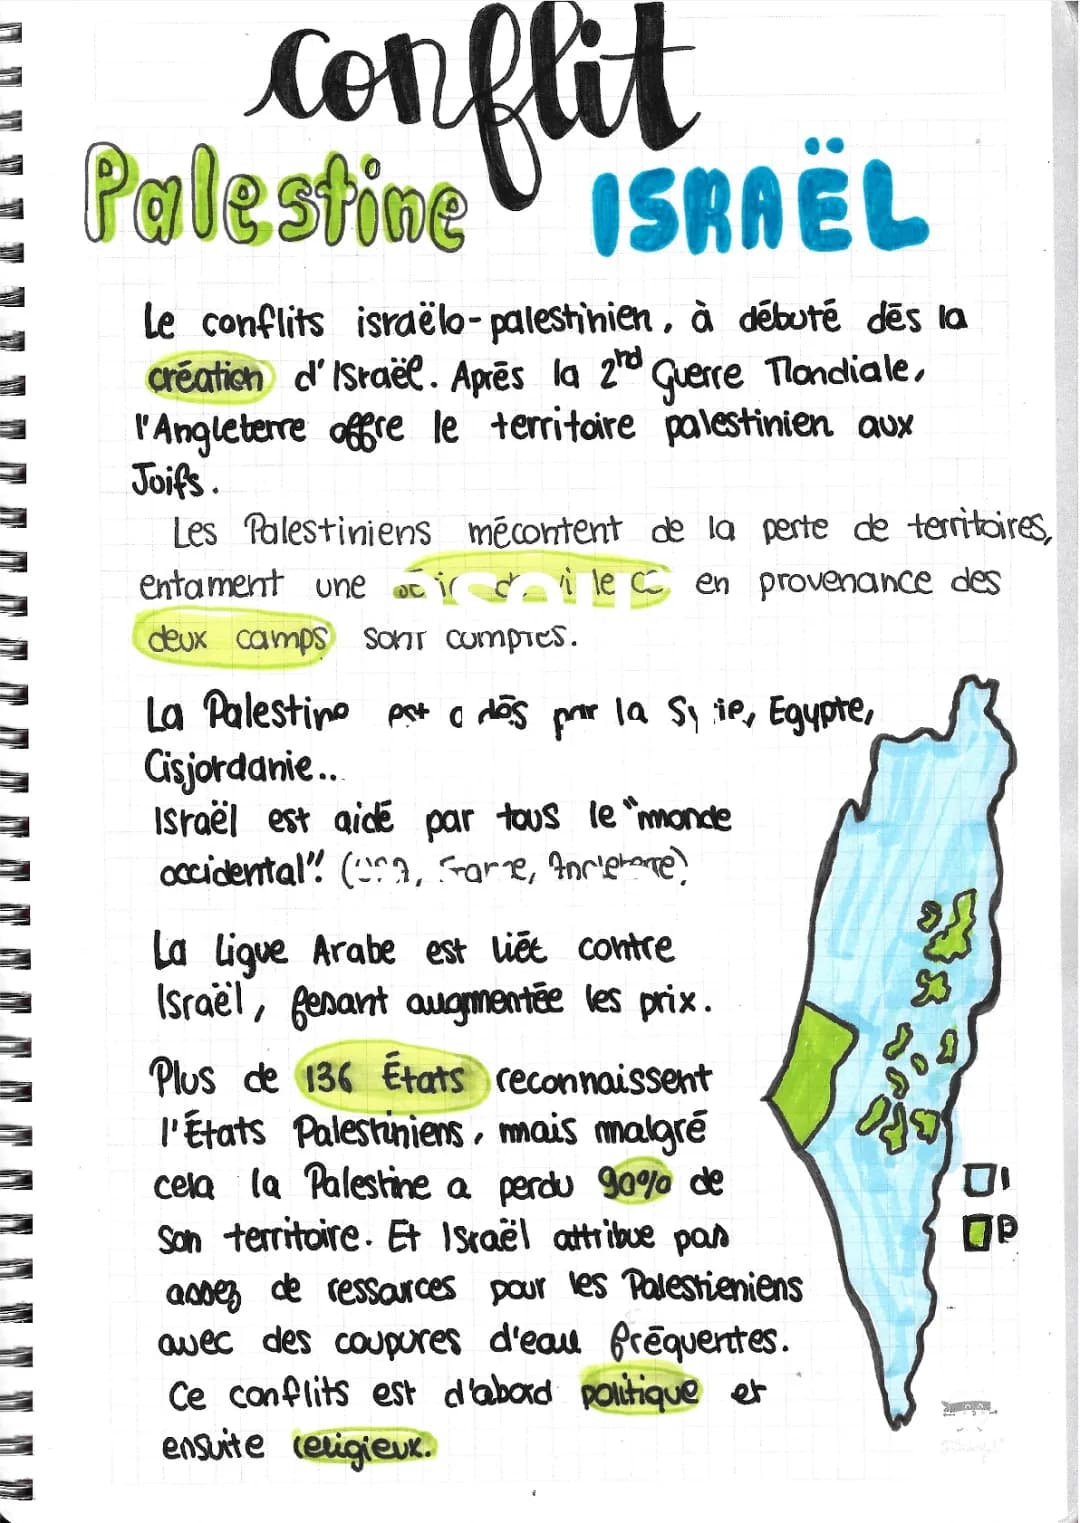 conflit
Palestine ISRAËL
Le conflits israëlo-palestinien, à débuté dès la
création d'Israël. Après la 2nd Guerre Mondiale,
l'Angleterre offre le territoire palestinien aux
Joifs.
Les Palestiniens mécontent de la perte de territoires,
entament une en provenance des
deux camps sont comptés.
La Palestine est par la Syrie, Egypte,
Cisjordanie...
Israël est aidé par tous le "monde
occidental". (USA, France, Angleterre)
La Ligue Arabe est liét contre
Israël, fesant augmentée les prix.
Plus de 136 États reconnaissent
l'États Palestiniens, mais malgré
cela la Palestine a perdu 90% de
son territoire. Et Israël attribue pas
assez de ressources pour les Palestieniens
avec des coupures d'eau fréquentes.
Ce conflits est d'abord politique et
ensuite religieux.
I
P